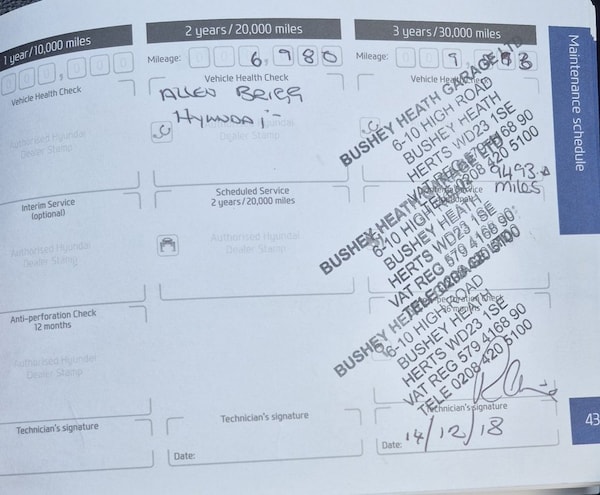 1 year/10,000 miles
2 years/20,000 miles
3 years/30,000 miles
Mileage: 0 0 6, 9 8 0
Mileage: 0 0 9,
Vehicle Health Check
Vehicle Health Check
Vehicle Health Check
ALLEN
HYUNDAI
Authorised Hyundai
Dealer Stamp
Authorised Hyundai
Dealer Stamp
Interim Service
(optional)
Scheduled Service
2 years/20,000 miles
Authorised Hyundai
Dealer Stamp
Authorised Hyundai
Dealer Stamp
Anti-perforation Check
12 months
Authorised Hyundai
Dealer Stamp
Technician's signature
Technician's signature
Date:
BUSHEY HEATH GARAGE LTD
6-10 HIGH ROAD
BUSHEY HEATH
HERTS WD23 1SE
9493
miles
BUSHEY HEATH
6-10 HIGH
BUSHEY HEATH
HERTS WD23 1SE
VAT REG 579 4168 90
6-10 HIGH ROAD
BUSHEY HEATH
HERTS WD23 1SE
VAT REG 579 4168 90
TELE 0208 420 5100
Technician's signature
Date: 14/12/18
Maintenance schedule
43